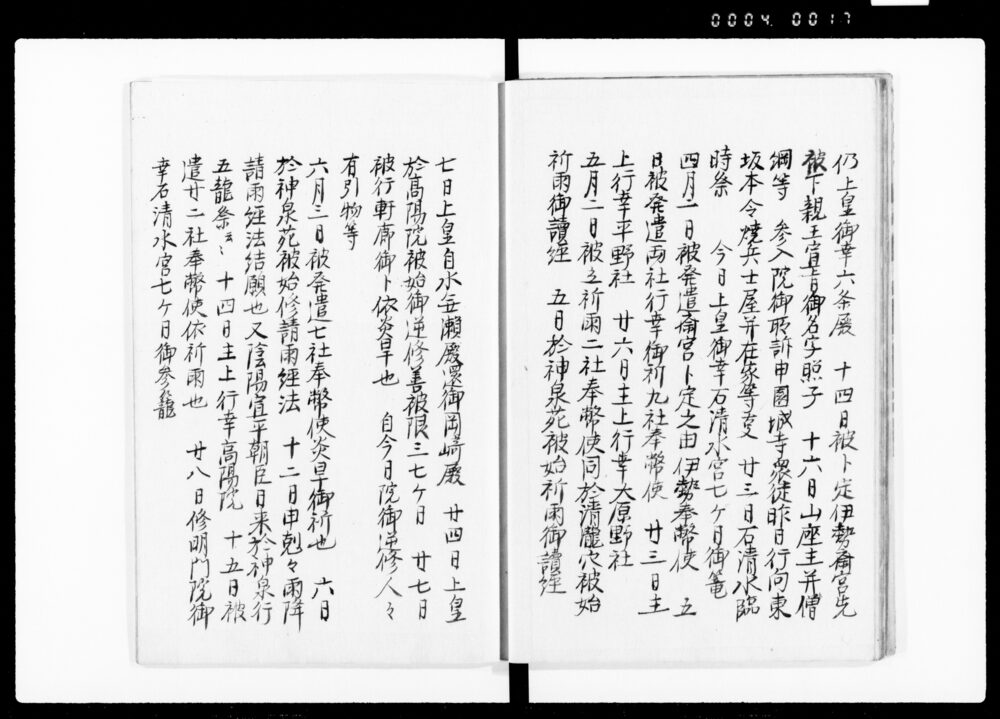 0004 0017
仍上皇御幸六条殿　十四日被卜定伊勢斎宮先
被下親王宣旨御名字熈子　十六日山座主并僧
綱等　参入院御所訴申園城寺衆徒昨日行向東
坂本令焼兵士屋并在家等事　廿三日石清水臨
時祭　今日上皇御幸石清水宮七ケ日御篭
四月一日被発遣斎宮卜定之由伊勢奉幣使　五
日被発遣両社行幸御祈九社奉幣使　廿三日主
上行幸平野社　廿六日主上行幸大原野社
五月二日被立祈雨二社奉幣使同於清瀧穴被始
祈雨御讀経　五日於神泉苑被始祈雨御讀経
七日上皇自水無瀬殿還御岡崎殿　廿四日上皇
於高陽院被始御逆修善被限三七ケ日　廿七日
被行軒廊御卜依炎旱也　自今日院御逆修人々
有引物等
六月三日被発遣七社奉幣使炎旱御祈也　六日
於神泉苑被始修請雨経法　十二日申剋々雨降
請雨経法結願也又陰陽宣平朝臣日来於神泉行
五龍祭云〻　十四日主上行幸高陽院　十五日被
遣廿二社奉幣使依祈雨也　廿八日修明門院御
幸石清水宮七ケ日御参籠